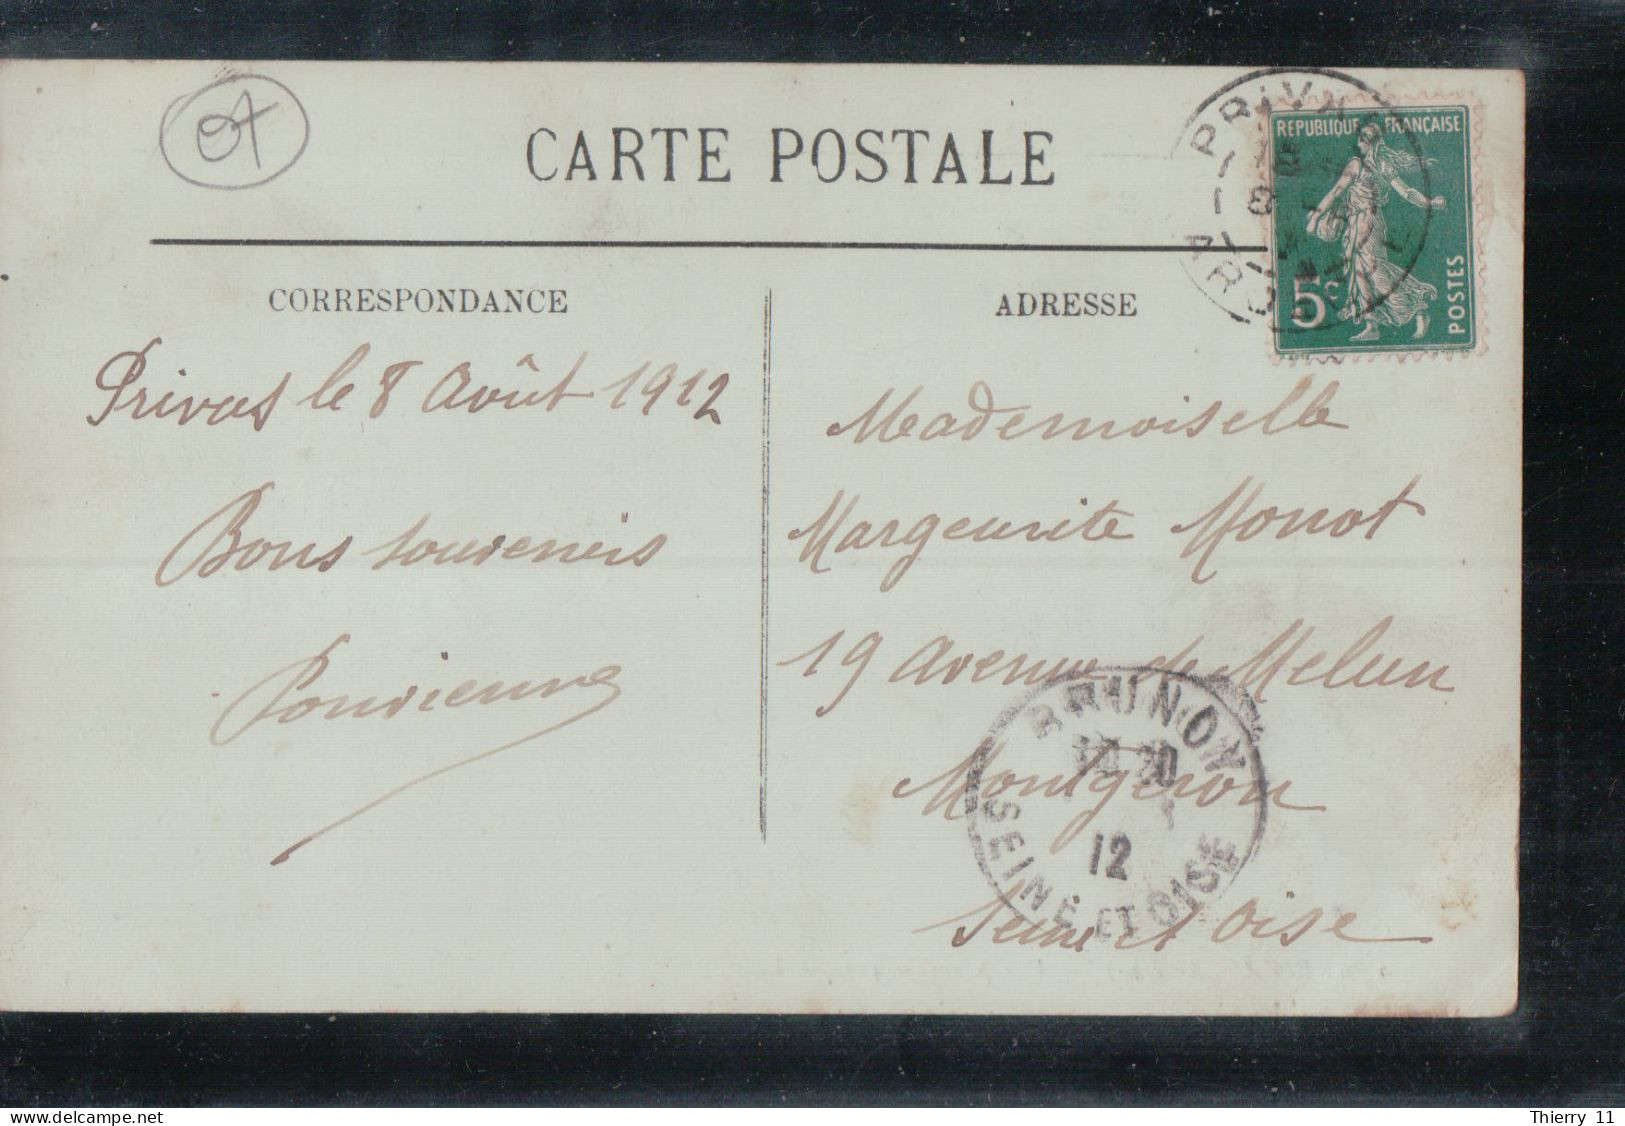 07
CARTE POSTALE
PRIVAS
ARDÈCHE
REPUBLIQUE FRANÇAISE
5c
POSTES
CORRESPONDANCE
Privas le 8 Août 1912
Bons souvenirs
ADRESSE
Mademoiselle
Margeurite Monot
19 Avenue de Melun
Montgeron
Seine et Oise
BRUNOY
12
SEINE ET OISE
www.delcampe.net
Thierry 11